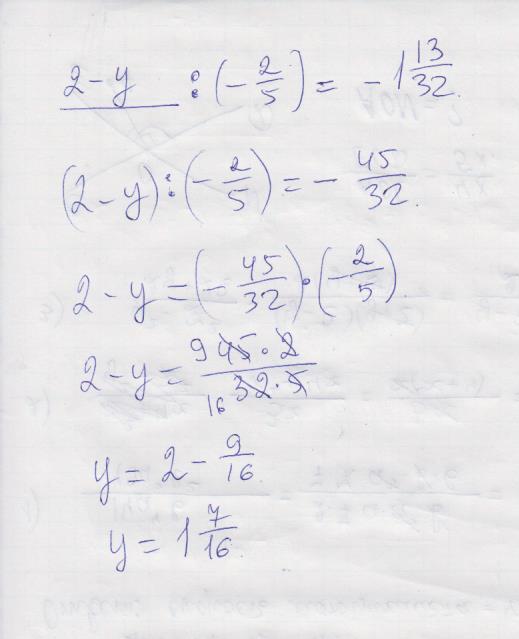 2-y : (-2/5) = -1 13/32.
(2-y) : (-2/5) = -45/32.
2-y = (-45/32)·(-2/5).
2-y = 9 45·2/16 32·5
y = 2 - 9/16.
y = 1 7/16.